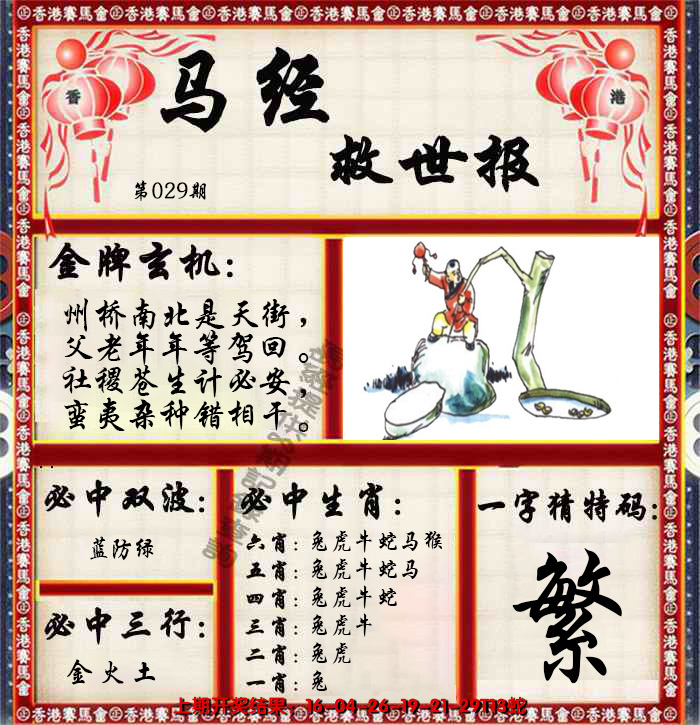 香港賽馬會
香 港
马经
救世报
第029期
金牌玄机：
州桥南北是天街，
父老年年等驾回。
社稷苍生计必安，
蛮夷杂种错相干。
必中双波：
蓝防绿
必中三行：
金火土
必中生肖：
六肖：兔虎牛蛇马猴
五肖：兔虎牛蛇马
四肖：兔虎牛蛇
三肖：兔虎牛
二肖：兔虎
一肖：兔
一字猜特码：
繁
上期开奖结果：16-04-26-19-21-29T13蛇